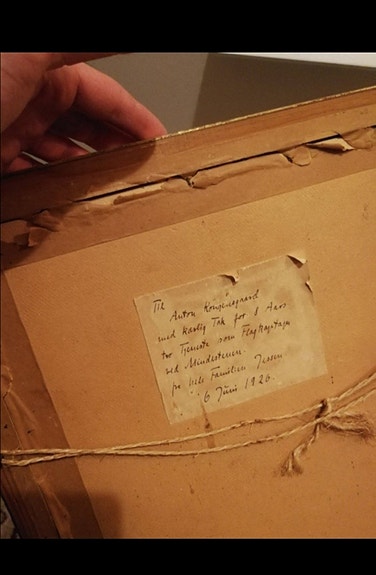 Til
Anton Kongensgaard
med kærlig Tak for 8 Aars
tro Tjeneste som Flagkaptajn
ved Mindestenen.
fra hele Familien Jessen
6 Juni 1926.